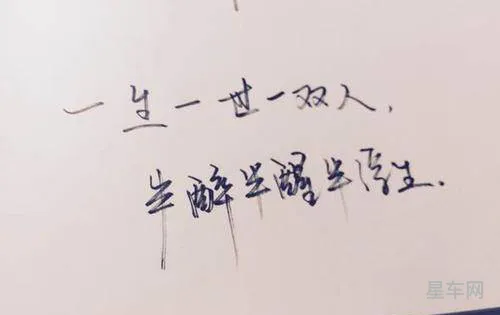 一生一世一双人，
半醉半醒半浮生．
星车网